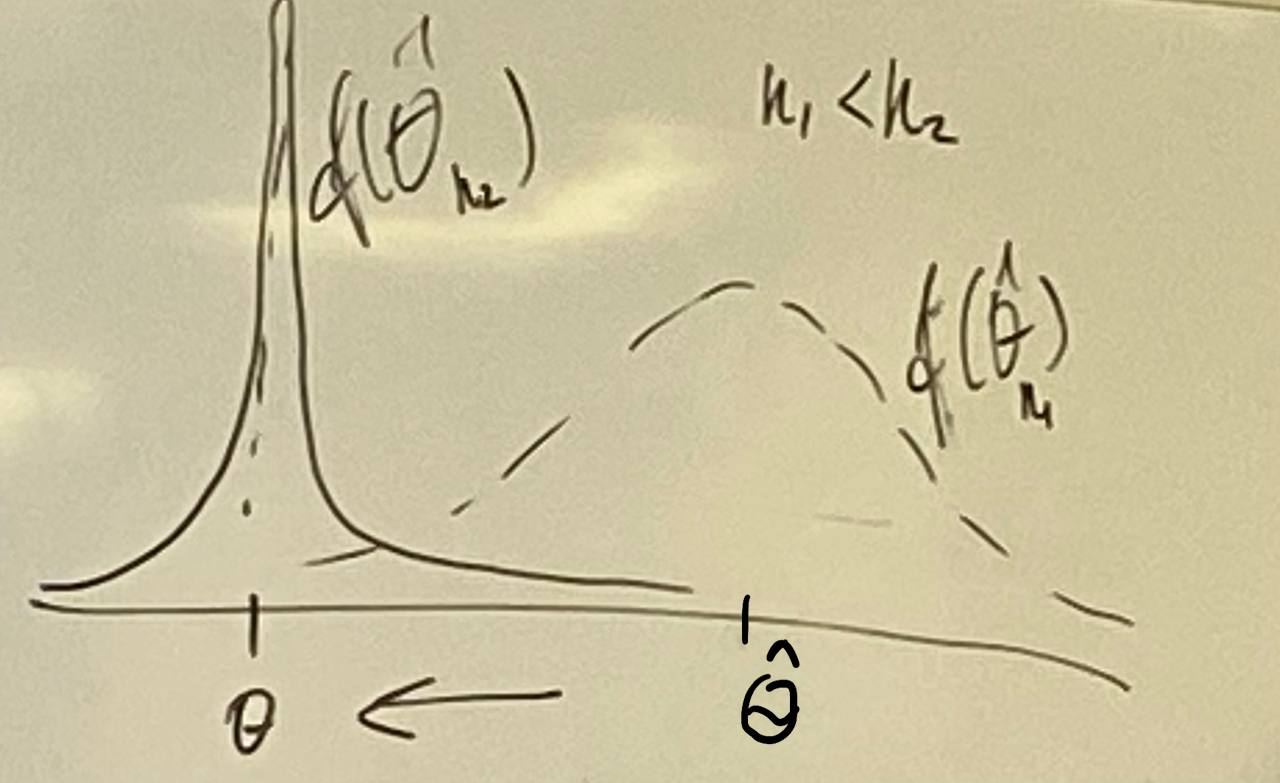 f(θ̂ₙ₂)
n₁ < n₂
f(θ̂ₙ₁)
θ ← θ̂